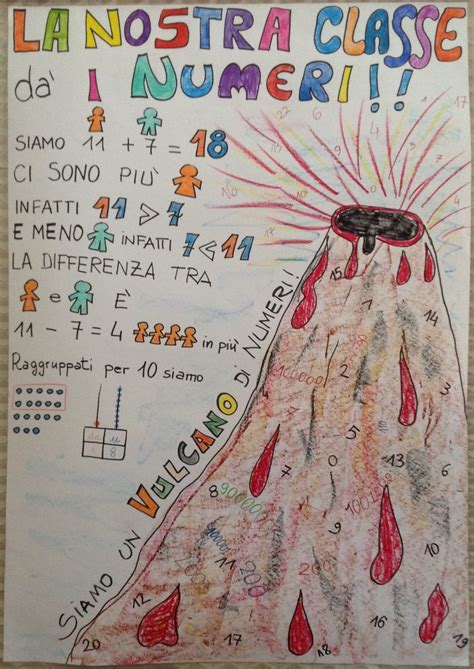 LA NOSTRA CLASSE
dà I NUMERI!!
SIAMO 11 + 7 = 18
CI SONO PIÙ
INFATTI 11 > 7
E MENO INFATTI 7 < 11
LA DIFFERENZA TRA
e È
11 - 7 = 4 in più
Raggruppati per 10 siamo
SIAMO UN VULCANO DI NUMERI!
15
14
3
100000
2
4
5
7
0
13
8
900000
1001000
9
200
16
11
200
12
17
20
18
19